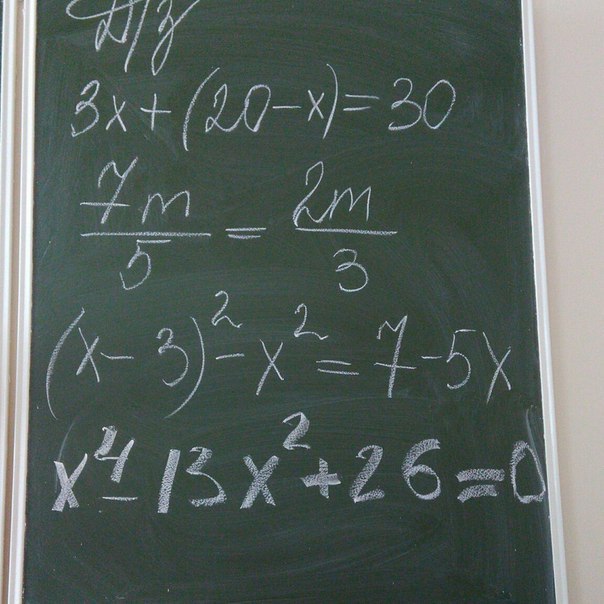 Д/з
3x+(20-x)=30
7m/5 = 2m/3
(x-3)²-x²=7-5x
x⁴-13x²+26=0